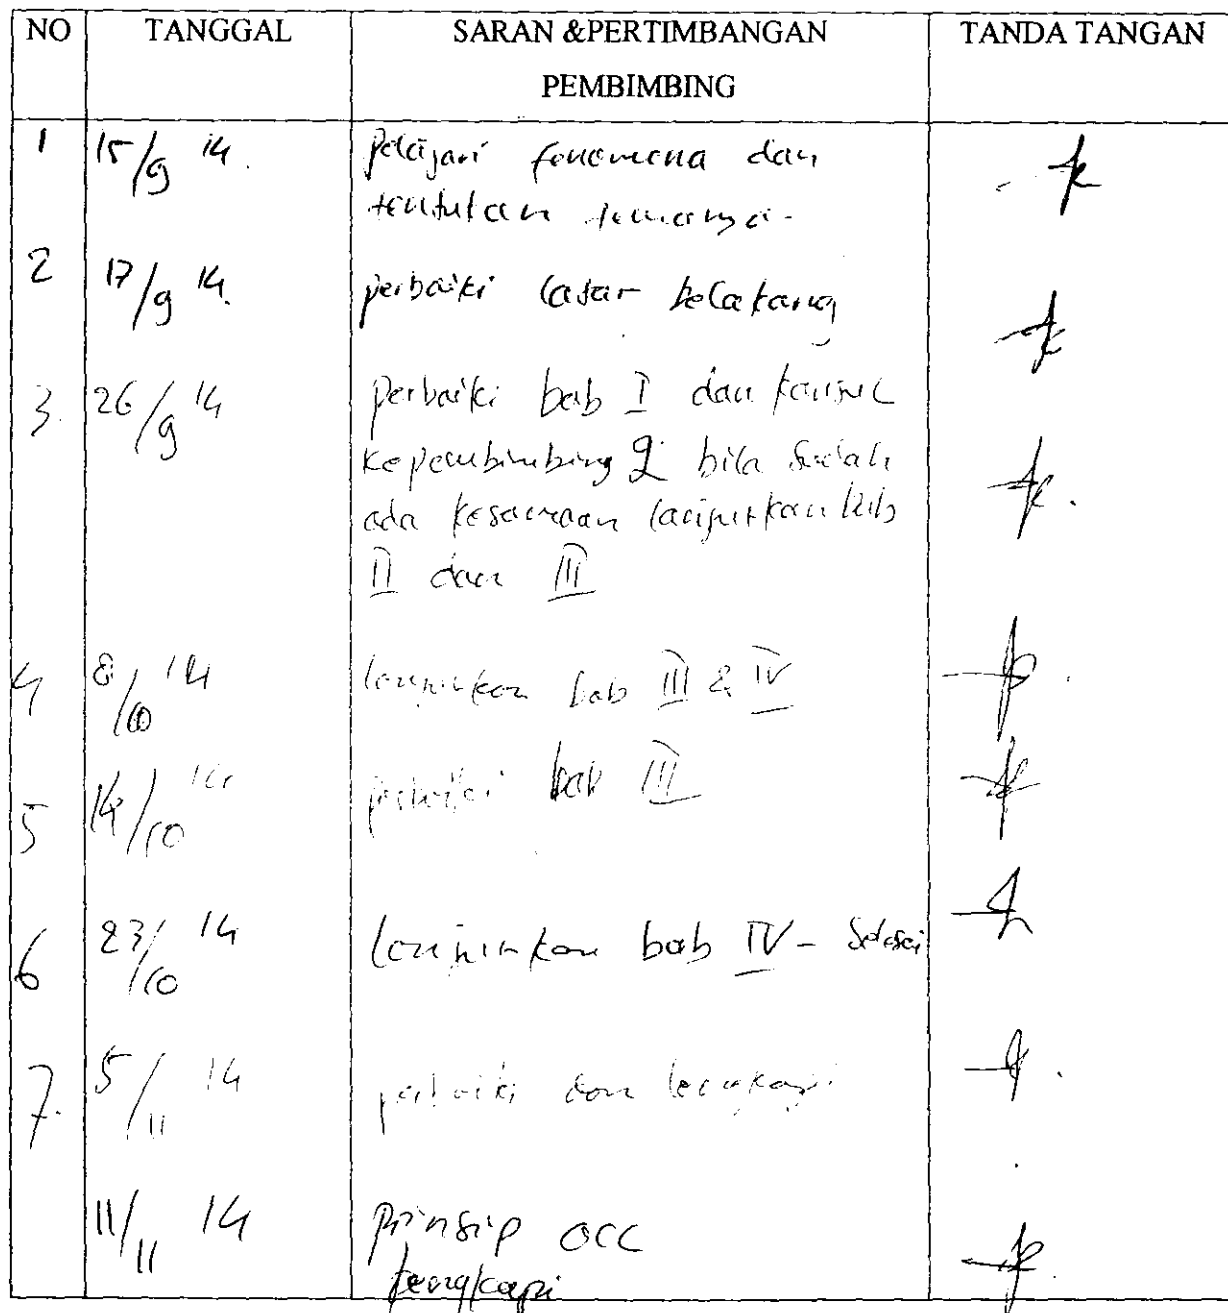 NO TANGGAL SARAN &PERTIMBANGAN TANDA TANGAN
PEMBIMBING
1 15/9 14. pelajari fenomena dan
tentukan temanya-
2 17/9 14. perbaiki latar belakang
3. 26/9 14 perbaiki bab I dan konsul
kepembimbing 2 bila sudah
ada kesamaan lanjutkan bab
II dan III
4 8/10 14 lanjutkan bab III & IV
5 14/10 14 perbaiki bab III
6 23/10 14 lanjutkan bab IV - Selesai
7. 5/11 14 perbaiki dan lengkapi
11/11 14 Prinsip acc
lengkapi